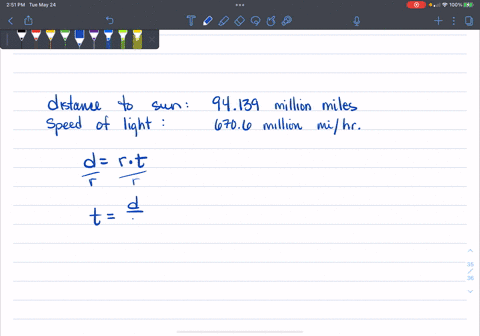 2:51 PM Tue May 24
100%
distance to sun: 94.139 million miles
Speed of light: 670.6 million mi/hr.
d = r·t
r r
t = d
35
/
36